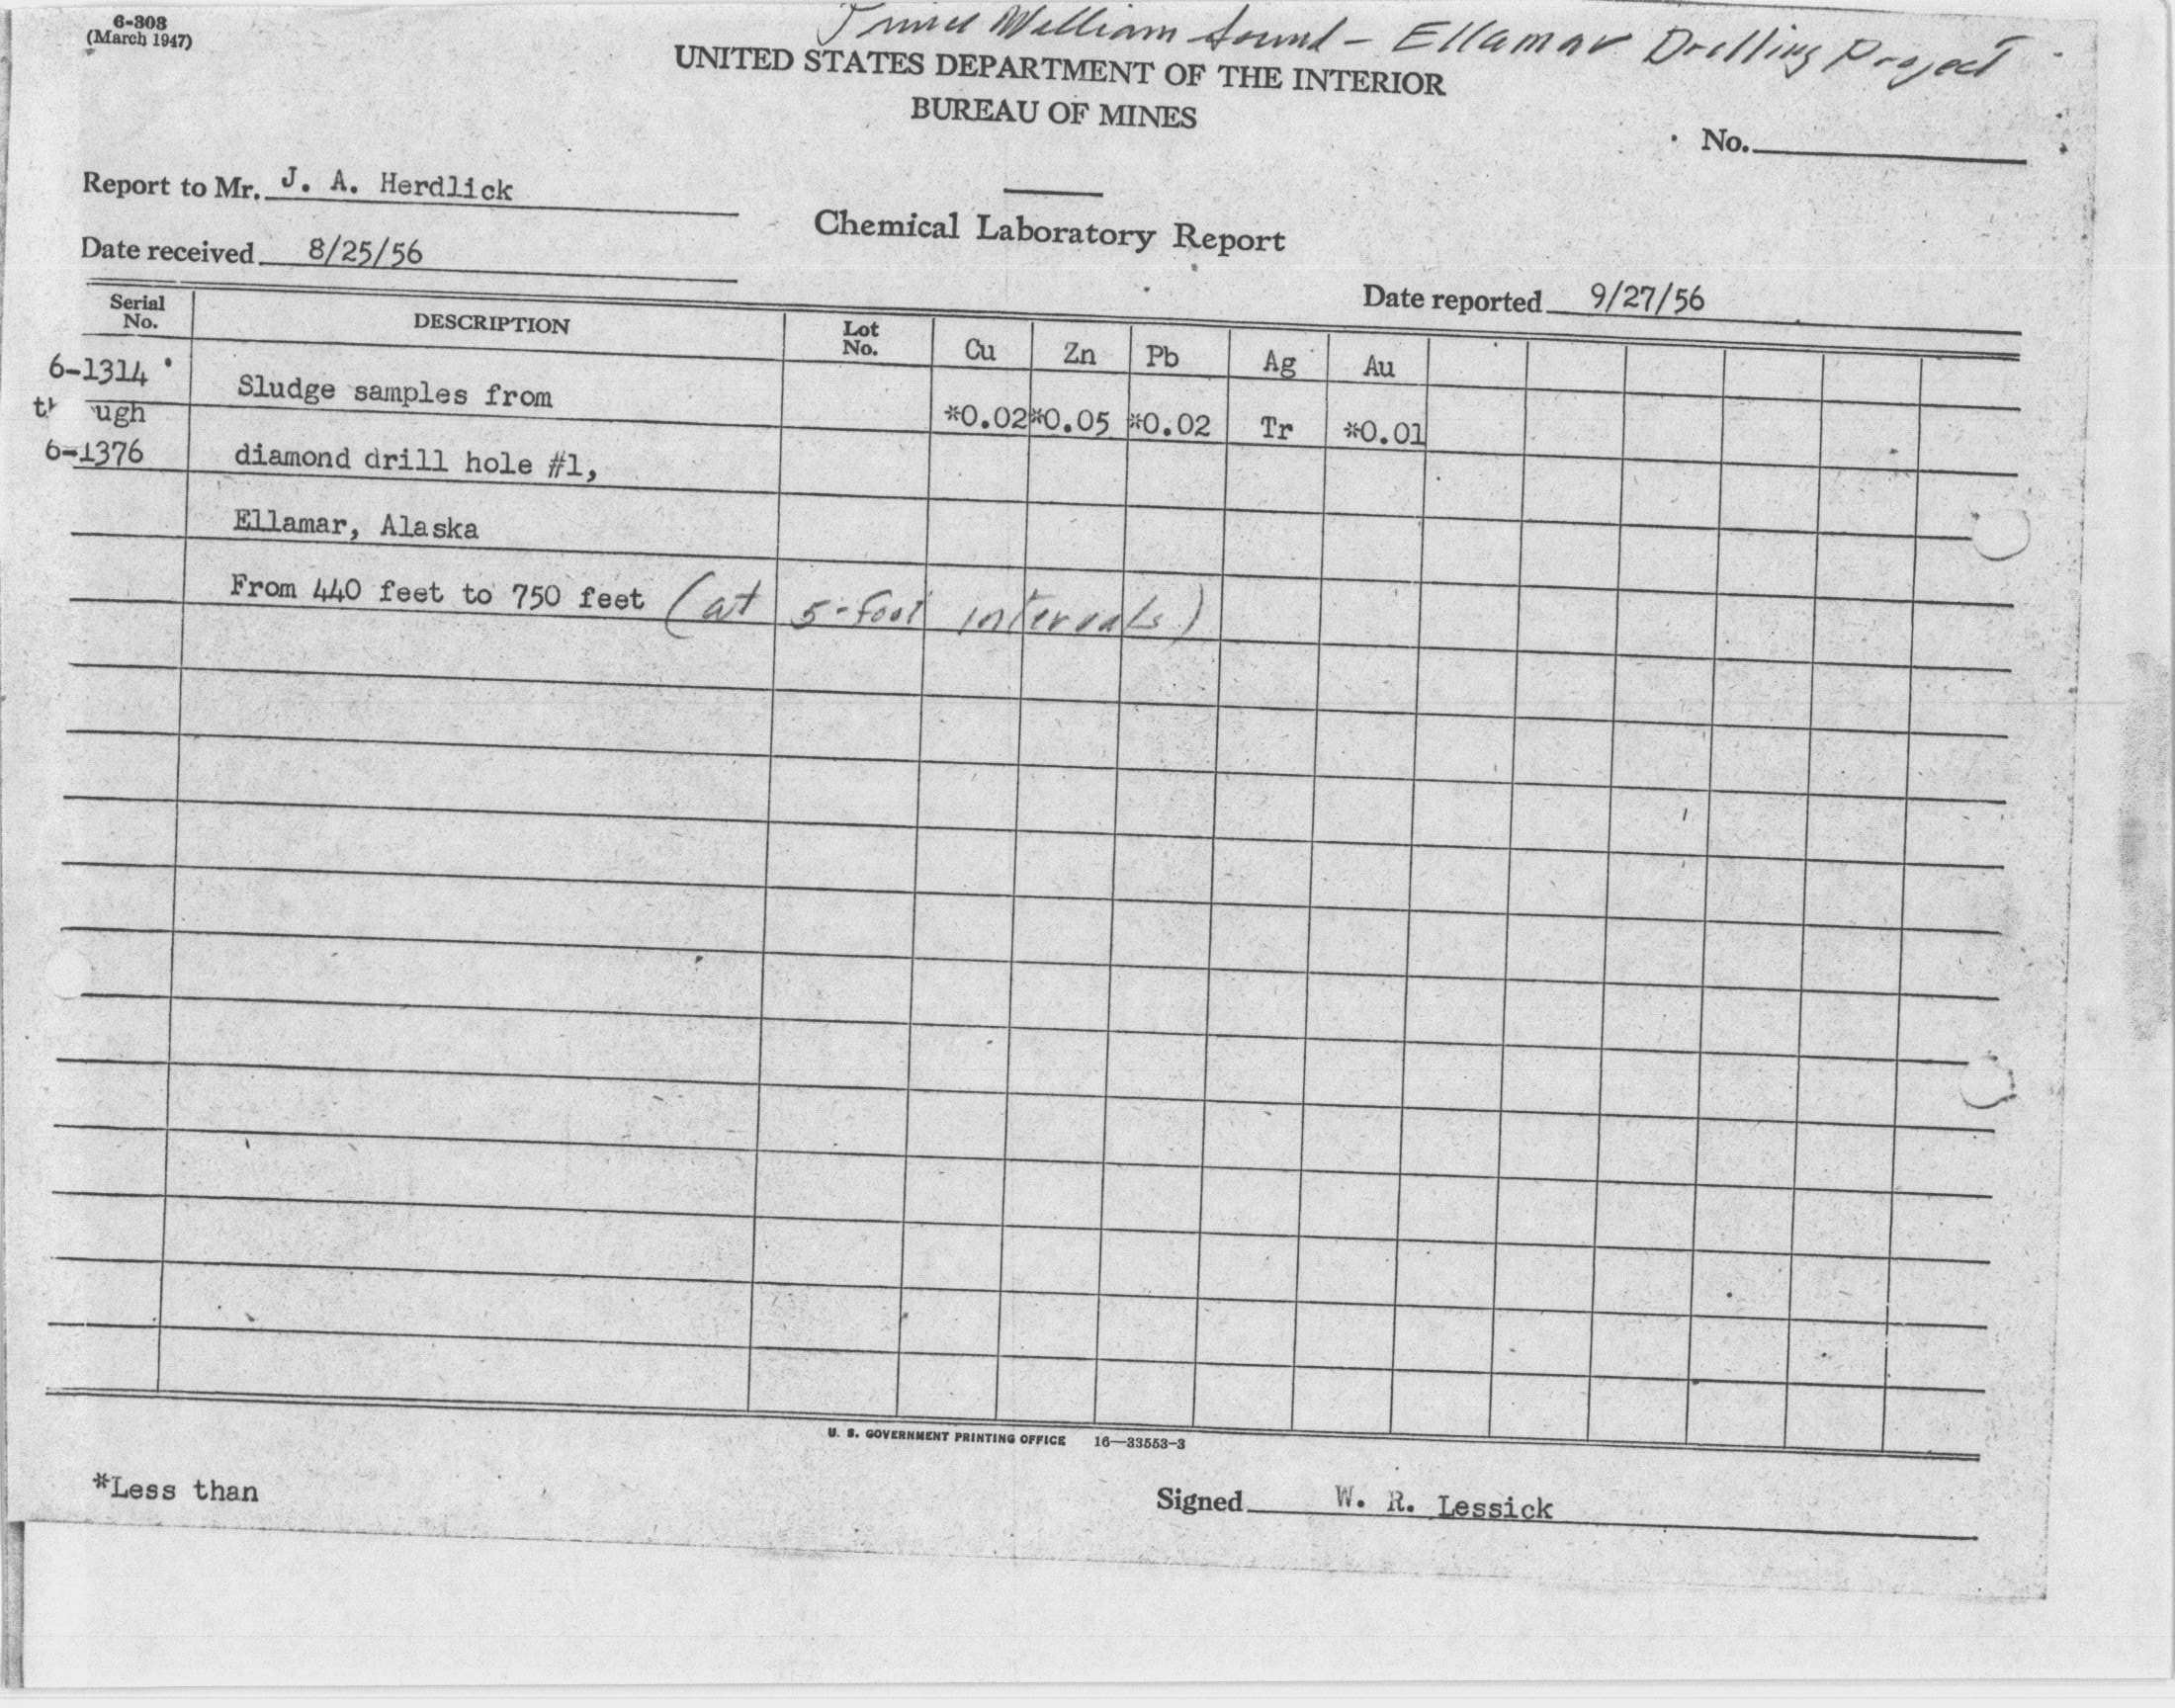 6-303
(March 1947)
Prince William Sound - Ellamar Drilling Project
UNITED STATES DEPARTMENT OF THE INTERIOR
BUREAU OF MINES
No.
Report to Mr. J. A. Herdlick
Chemical Laboratory Report
Date received 8/25/56
Date reported 9/27/56
Serial No. DESCRIPTION Lot No. Cu Zn Pb Ag Au
6-1314 Sludge samples from *0.02 *0.05 *0.02 Tr *0.01
ugh
6-1376 diamond drill hole #1,
Ellamar, Alaska
From 440 feet to 750 feet (at 5-foot intervals)
U. S. GOVERNMENT PRINTING OFFICE 16—33553-3
*Less than
Signed W. R. Lessick